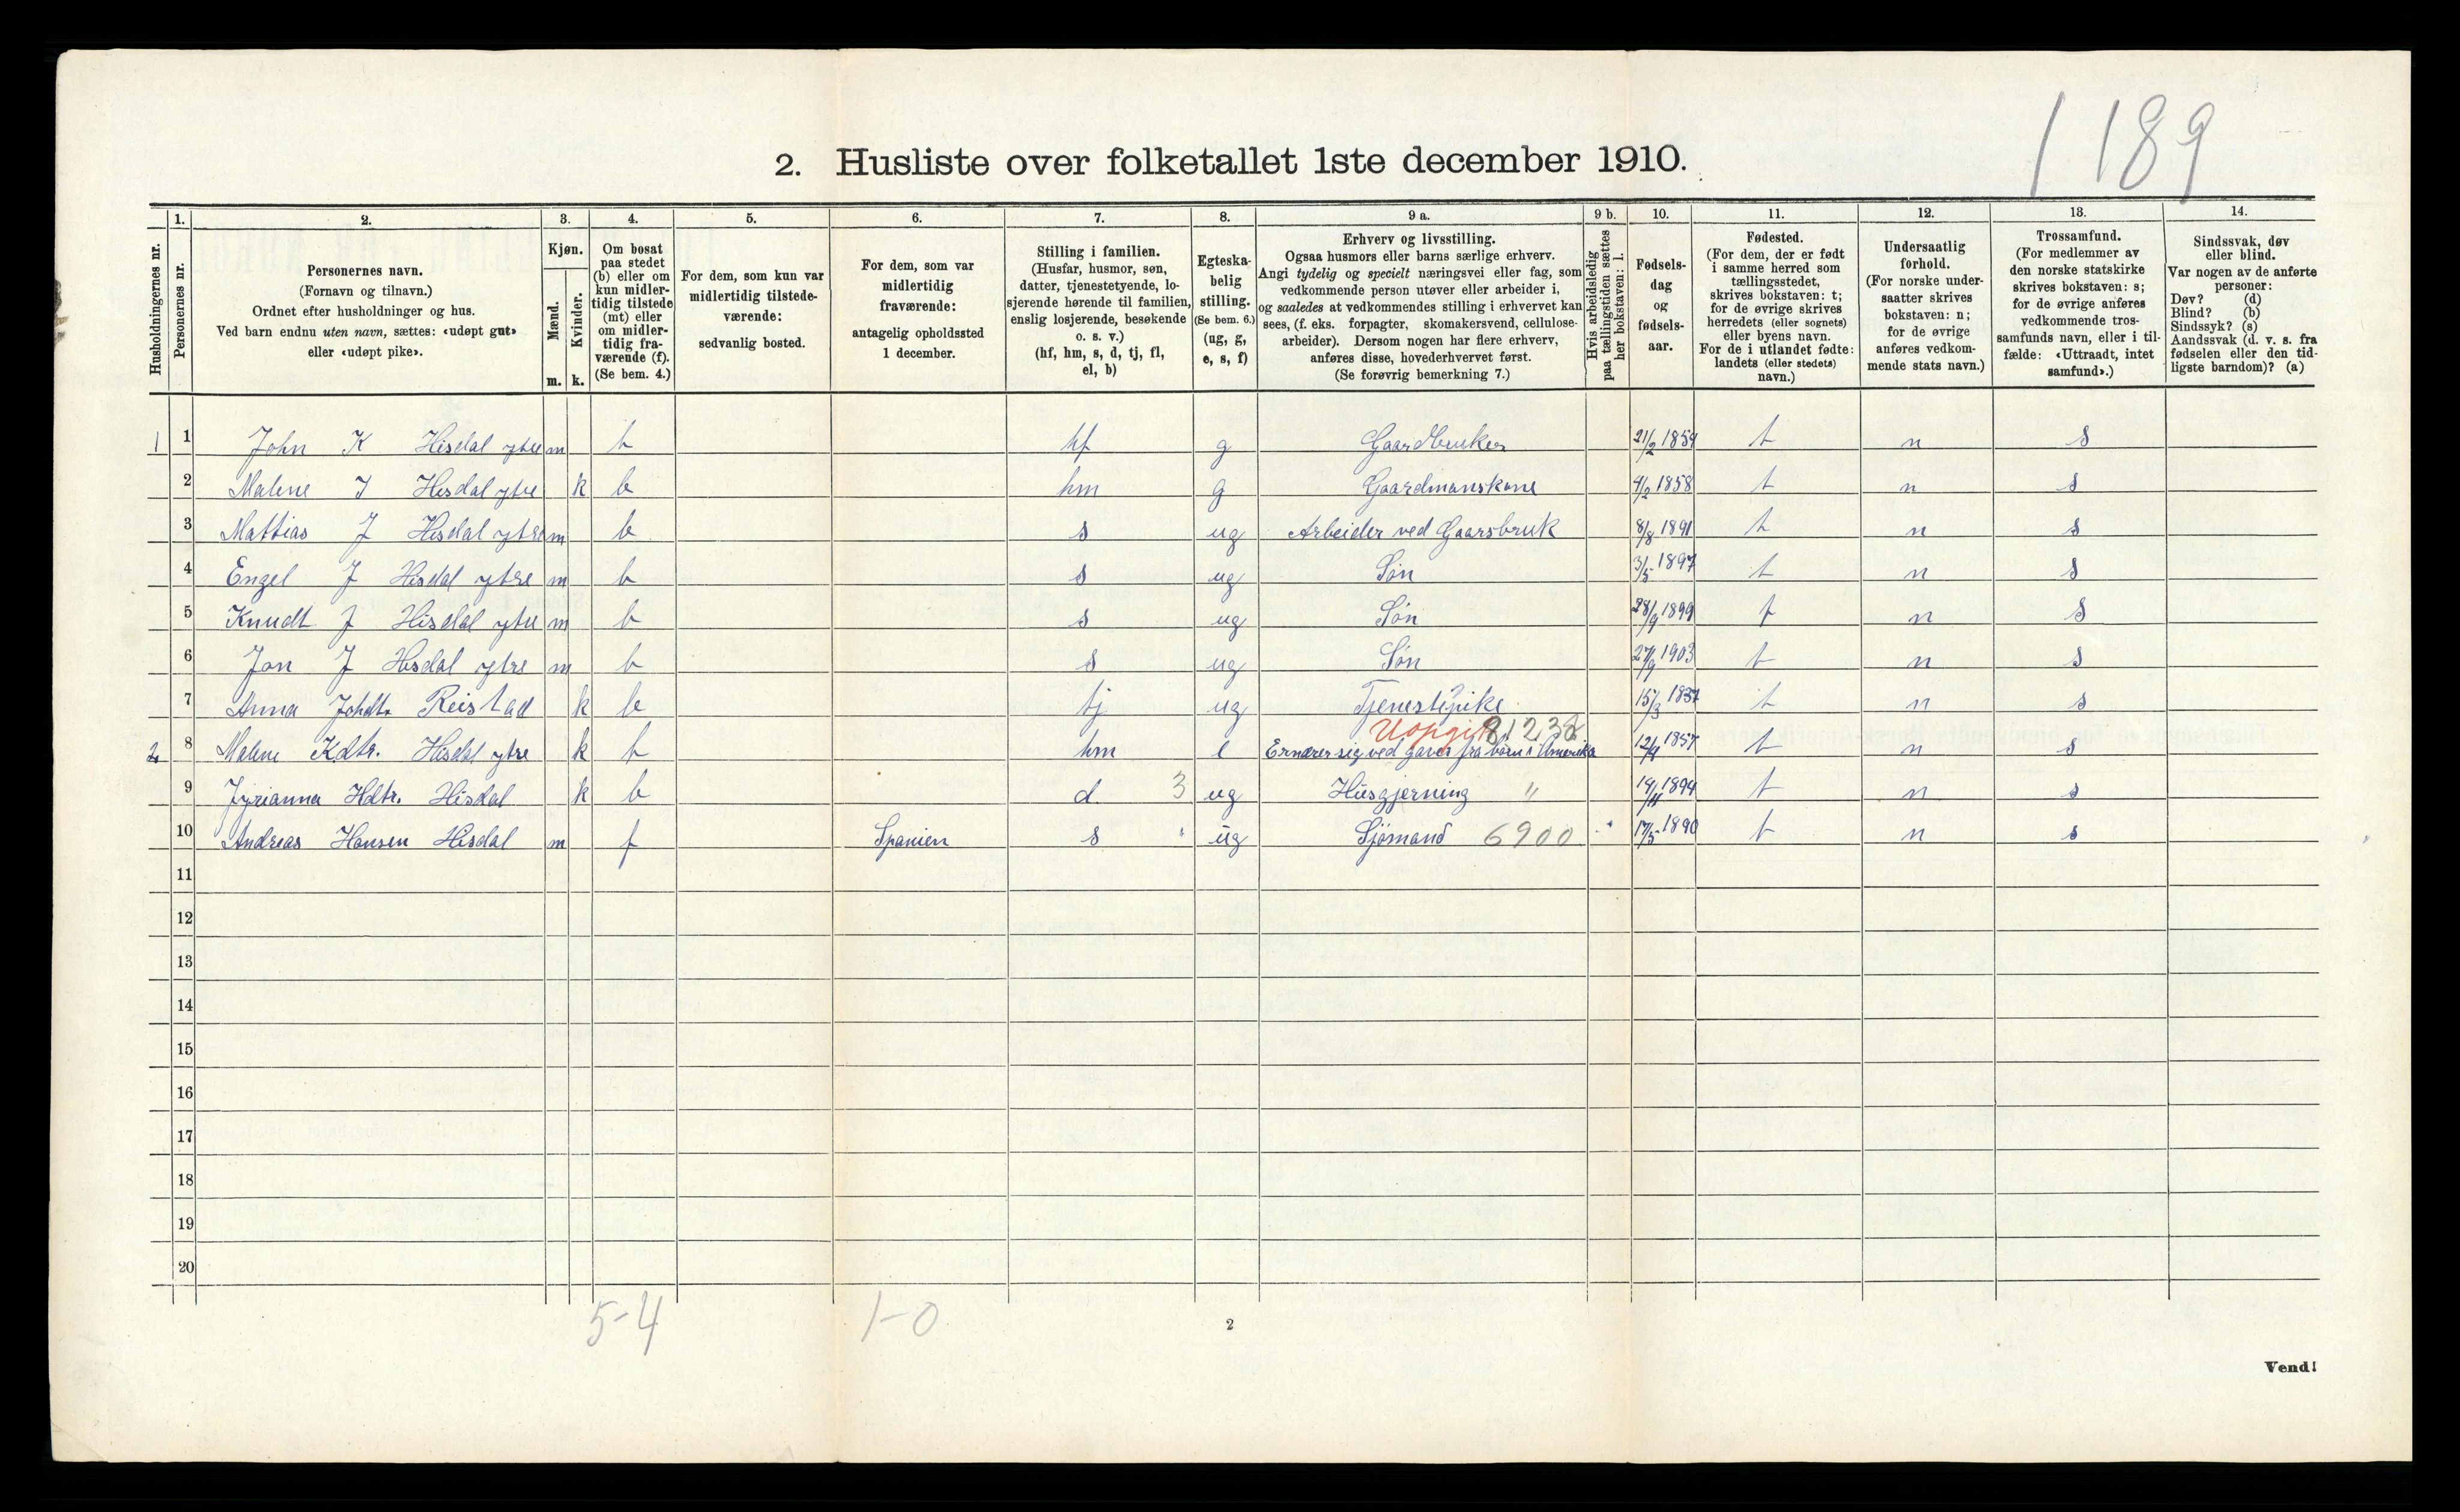 1 189
2. Husliste over folketallet 1ste december 1910.
Husholdningernes nr.
1.
Personernes nr.
2.
Personernes navn.
(Fornavn og tilnavn.)
Ordnet efter husholdninger og hus.
Ved barn endnu uten navn, sættes: «udøpt gut»
eller «udøpt pike».
3.
Kjøn.
Mænd.
Kvinder.
m. k.
4.
Om bosat
paa stedet
(b) eller om
kun midler-
tidig tilstede
(mt) eller
om midler-
tidig fra-
værende (f).
(Se bem. 4.)
5.
For dem, som kun var
midlertidig tilstede-
værende:
sedvanlig bosted.
6.
For dem, som var
midlertidig
fraværende:
antagelig opholdssted
1 december.
7.
Stilling i familien.
(Husfar, husmor, søn,
datter, tjenestetyende, lo-
sjerende hørende til familien,
enslig losjerende, besøkende
o. s. v.)
(hf, hm, s, d, tj, fl,
el, b)
8.
Egteska-
belig
stilling.
(Se bem. 6.)
(ug, g,
e, s, f)
9 a.
Erhverv og livsstilling.
Ogsaa husmors eller barns særlige erhverv.
Angi tydelig og specielt næringsvei eller fag, som
vedkommende person utøver eller arbeider i,
og saaledes at vedkommendes stilling i erhvervet kan
sees, (f. eks. forpagter, skomakersvend, cellulose-
arbeider). Dersom nogen har flere erhverv,
anføres disse, hovederhvervet først.
(Se forøvrig bemerkning 7.)
9 b.
Hvis arbeidsledig
paa tællingstiden sættes
her bokstaven: l.
10.
Fødsels-
dag
og
fødsels-
aar.
11.
Fødested.
(For dem, der er født
i samme herred som
tællingsstedet,
skrives bokstaven: t;
for de øvrige skrives
herredets (eller sognets)
eller byens navn.
For de i utlandet fødte:
landets (eller stedets)
navn.)
12.
Undersaatlig
forhold.
(For norske under-
saatter skrives
bokstaven: n;
for de øvrige
anføres vedkom-
mende stats navn.)
13.
Trossamfund.
(For medlemmer av
den norske statskirke
skrives bokstaven: s;
for de øvrige anføres
vedkommende tros-
samfunds navn, eller i til-
fælde: «Uttraadt, intet
samfund».)
14.
Sindssvak, døv
eller blind.
Var nogen av de anførte
personer:
Døv? (d)
Blind? (b)
Sindssyk? (s)
Aandssvak (d. v. s. fra
fødselen eller den tid-
ligste barndom)? (a)
1 1 John K Hisdal ytre m b hf g Gaardbruker 21/2 1854 t n s
2 Malene J Hisdal ytre k b hm g Gaardmanskone 4/2 1858 t n s
3 Mattias J Hisdal ytre m b s ug Arbeider ved Gaarsbruk 8/8 1891 t n s
4 Engel J Hisdal ytre m b s ug Søn 3/5 1897 t n s
5 Knudt J Hisdal ytre m b s ug Søn 28/9 1899 t n s
6 Jon J Hisdal ytre m b s ug Søn 27/9 1903 t n s
7 Anna Johdtr Reistad k b tj ug Tjenestepike 15/3 1837 t n s
Uopgit 81238
2 8 Malene Kdtr. Hisdal ytre k b hm e Ernærer sig ved gaver fra børn i Amerika 12/4 1857 t n s
9 Jyrianna Hdtr. Hisdal k b d. 3 ug Husgjerning " 14/11 1894 t n s
10 Andreas Hansen Hisdal m f Spanien s " ug Sjömand 6900 17/5 1890 t n s
11
12
13
14
15
16
17
18
19
20
5-4 1-0
2
Vend!